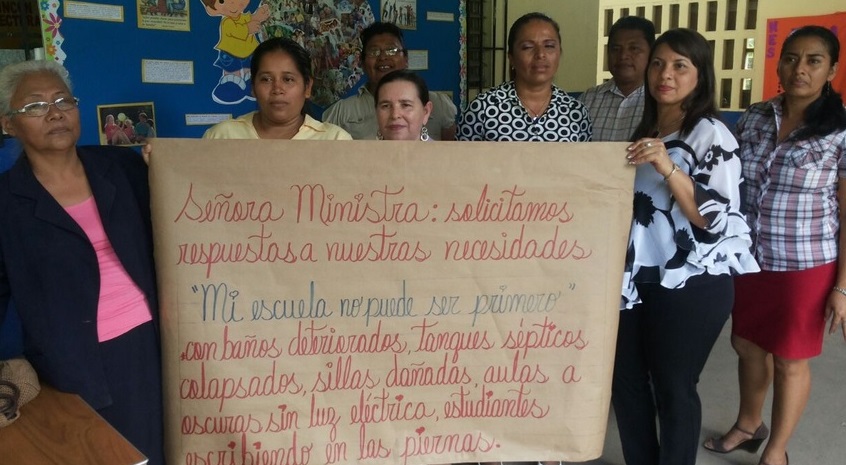 Señora Ministra: solicitamos
respuestas a nuestras necesidades
"Mi escuela no puede ser primero"
con baños deteriorados, tanques sépticos
colapsados, sillas dañadas, aulas a
oscuras sin luz eléctrica, estudiantes
escribiendo en las piernas.